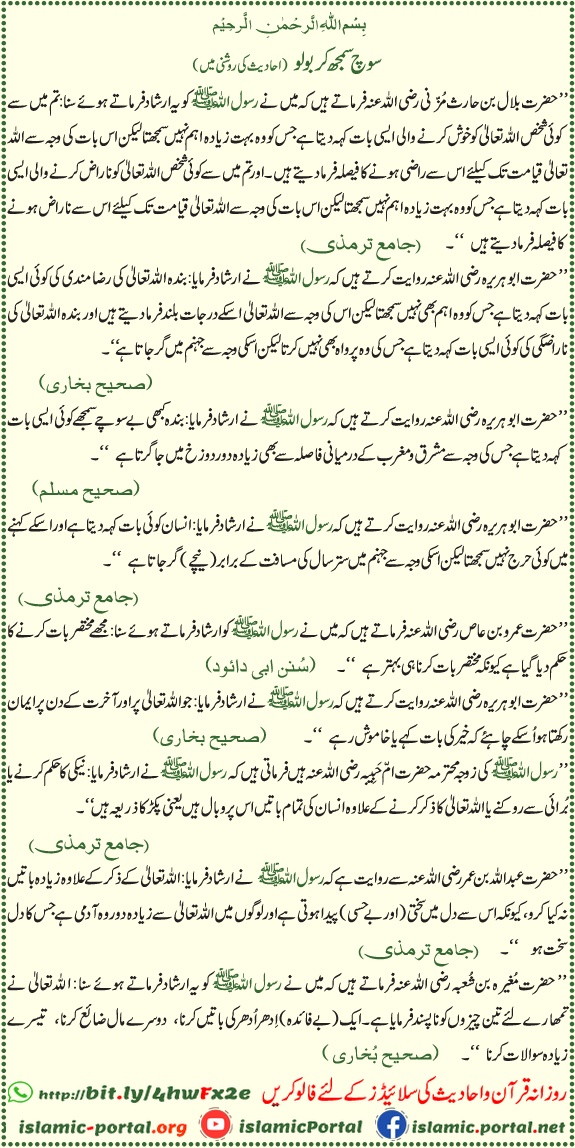 بِسْمِ اللهِ الرَّحْمٰنِ الرَّحِيْمِ
سوچ سمجھ کر بولو (احادیث کی روشنی میں)
’’حضرت بلال بن حارث مُزَنی رضی اللہ عنہ فرماتے ہیں کہ میں نے رسول اللہ ﷺ کو یہ ارشاد فرماتے ہوئے سنا: تم میں سے
کوئی شخص اللہ تعالیٰ کو خوش کرنے والی ایسی بات کہہ دیتا ہے جس کو وہ بہت زیادہ اہم نہیں سمجھتا لیکن اس بات کی وجہ سے اللہ
تعالیٰ قیامت تک کیلئے اس سے راضی ہونے کا فیصلہ فرما دیتے ہیں۔ اور تم میں سے کوئی شخص اللہ تعالیٰ کو ناراض کرنے والی ایسی
بات کہہ دیتا ہے جس کو وہ بہت زیادہ اہم نہیں سمجھتا لیکن اس بات کی وجہ سے اللہ تعالیٰ قیامت تک کیلئے اس سے ناراض ہونے
کا فیصلہ فرما دیتے ہیں ‘‘۔ (جامع ترمذی)
’’حضرت ابو ہریرہ رضی اللہ عنہ روایت کرتے ہیں کہ رسول اللہ ﷺ نے ارشاد فرمایا: بندہ اللہ تعالیٰ کی رضامندی کی کوئی ایسی
بات کہہ دیتا ہے جس کو وہ اہم بھی نہیں سمجھتا لیکن اس کی وجہ سے اللہ تعالیٰ اسکے درجات بلند فرما دیتے ہیں اور بندہ اللہ تعالیٰ کی
ناراضگی کی کوئی ایسی بات کہہ دیتا ہے جس کی وہ پرواہ بھی نہیں کرتا لیکن اسکی وجہ سے جہنم میں گر جاتا ہے‘‘۔
(صحیح بخاری)
’’حضرت ابو ہریرہ رضی اللہ عنہ روایت کرتے ہیں کہ رسول اللہ ﷺ نے ارشاد فرمایا: بندہ کبھی بے سوچے سمجھے کوئی ایسی بات
کہہ دیتا ہے جس کی وجہ سے مشرق و مغرب کے درمیانی فاصلہ سے بھی زیادہ دور دوزخ میں جا گرتا ہے ‘‘۔
(صحیح مسلم)
’’حضرت ابو ہریرہ رضی اللہ عنہ روایت کرتے ہیں کہ رسول اللہ ﷺ نے ارشاد فرمایا: انسان کوئی بات کہہ دیتا ہے اور اسکے کہنے
میں کوئی حرج نہیں سمجھتا لیکن اسکی وجہ سے جہنم میں ستر سال کی مسافت کے برابر (نیچے) گر جاتا ہے ‘‘۔
(جامع ترمذی)
’’حضرت عمرو بن عاص رضی اللہ عنہ فرماتے ہیں کہ میں نے رسول اللہ ﷺ کو ارشاد فرماتے ہوئے سنا: مجھے مختصر بات کرنے کا
حکم دیا گیا ہے کیونکہ مختصر بات کرنا ہی بہتر ہے ‘‘۔ (سُنن ابی دائود)
’’حضرت ابو ہریرہ رضی اللہ عنہ روایت کرتے ہیں کہ رسول اللہ ﷺ نے ارشاد فرمایا: جو اللہ تعالیٰ پر اور آخرت کے دن پر ایمان
رکھتا ہو اُسکے چاہئے کہ خیر کی بات کہے یا خاموش رہے ‘‘۔ (صحیح بخاری)
’’رسول اللہ ﷺ کی زوجہ محترمہ حضرت امّ حَبِیبہ رضی اللہ عنہ فرماتی ہیں کہ رسول اللہ ﷺ نے ارشاد فرمایا: نیکی کا حکم کرنے یا
بُرائی سے روکنے یا اللہ تعالیٰ کا ذکر کرنے کے علاوہ انسان کی تمام باتیں اس پر وبال ہیں یعنی پکڑ کا ذریعہ ہیں‘‘۔
(جامع ترمذی)
’’حضرت عبداللہ بن عمر رضی اللہ عنہ سے روایت ہے کہ رسول اللہ ﷺ نے ارشاد فرمایا: اللہ تعالیٰ کے ذکر کے علاوہ زیادہ باتیں
نہ کیا کرو، کیونکہ اس سے دل میں سختی (اور بے حسی) پیدا ہوتی ہے اور لوگوں میں اللہ تعالیٰ سے زیادہ دور وہ آدمی ہے جس کا دل
سخت ہو ‘‘۔ (جامع ترمذی)
’’حضرت مُغیرہ بن شُعبہ رضی اللہ عنہ فرماتے ہیں کہ میں نے رسول اللہ ﷺ کو یہ ارشاد فرماتے ہوئے سنا: اللہ تعالیٰ نے
تمھارے لئے تین چیزوں کو ناپسند فرمایا ہے۔ ایک (بے فائدہ) اِدھر اُدھر کی باتیں کرنا، دوسرے مال ضائع کرنا، تیسرے
زیادہ سوالات کرنا ‘‘۔ (صحیح بُخاری)
روزانہ قرآن و احادیث کی سلائیڈز کے لئے فالو کریں http://bit.ly/4hwFx2e
islamic-portal.org islamicPortal islamicPortal.net